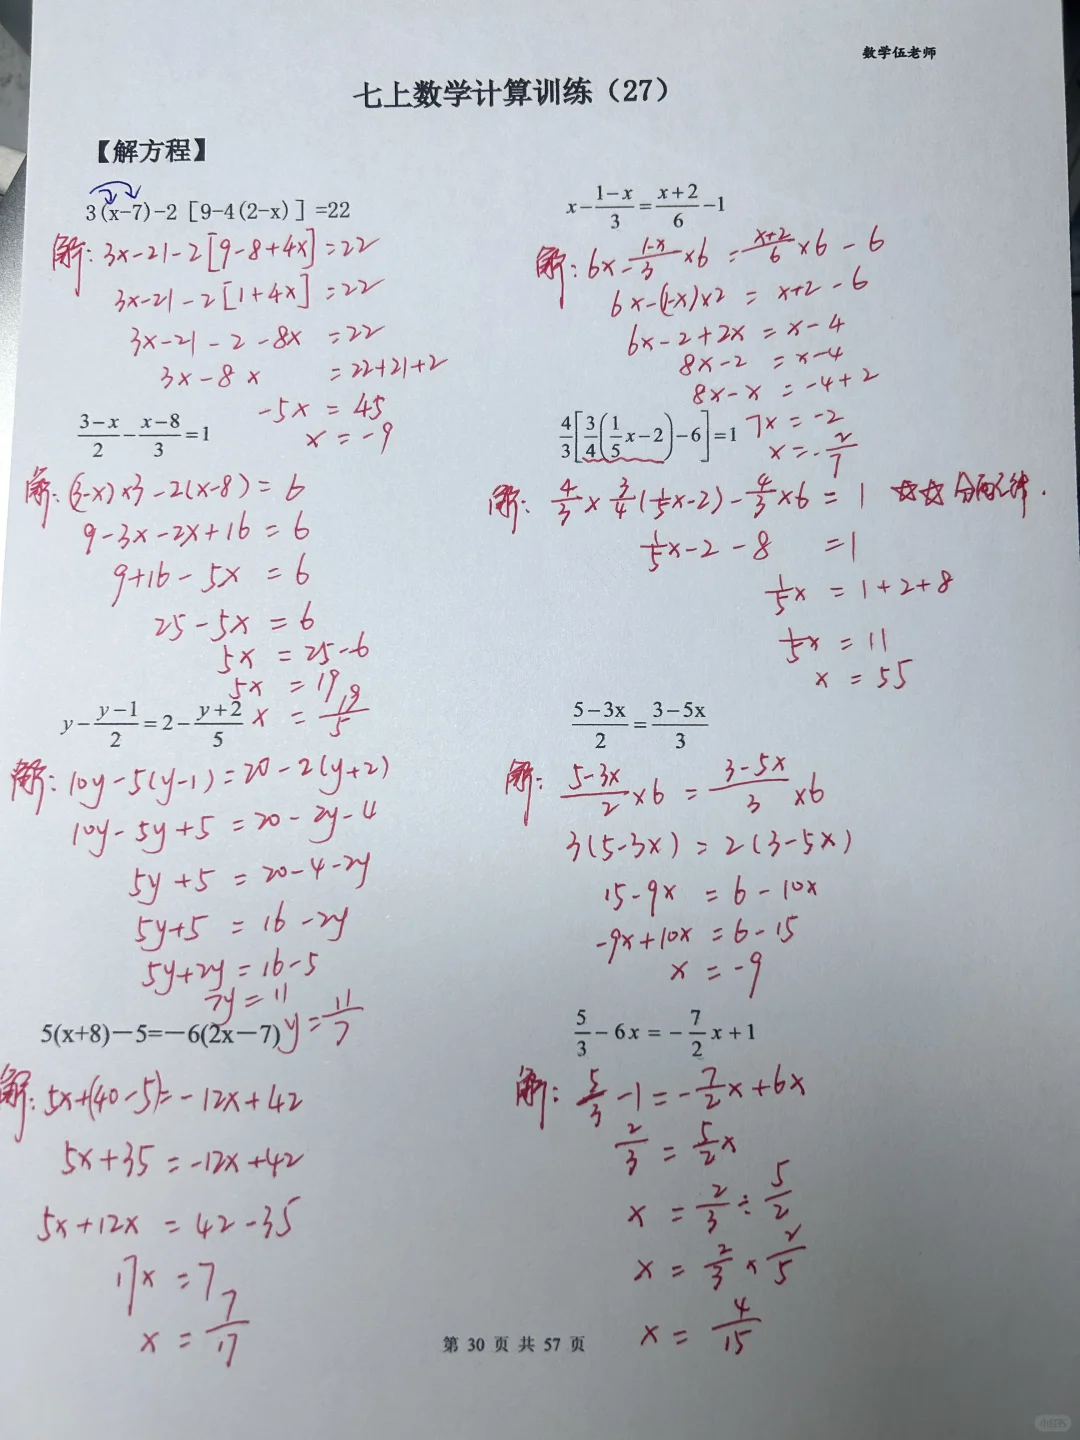 数学伍老师
七上数学计算训练（27）
【解方程】
3(x-7)-2［9-4(2-x)］=22
解: 3x-21-2[9-8+4x]=22
3x-21-2[1+4x]=22
3x-21-2-8x=22
3x-8x=22+21+2
-5x=45
x=-9
x-\frac{1-x}{3}=\frac{x+2}{6}-1
解: 6x-\frac{1-x}{3}×6=\frac{x+2}{6}×6-6
6x-(1-x)×2=x+2-6
6x-2+2x=x-4
8x-2=x-4
8x-x=-4+2
7x=-2
x=-\frac{2}{7}
\frac{3-x}{2}-\frac{x-8}{3}=1
解: (3-x)×3-2(x-8)=6
9-3x-2x+16=6
9+16-5x=6
25-5x=6
5x=25-6
5x=19
x=\frac{19}{5}
\frac{4}{3}[\frac{3}{4}(\frac{1}{5}x-2)-6]=1
解: \frac{4}{3}×\frac{3}{4}(\frac{1}{5}x-2)-\frac{4}{3}×6=1 ☆☆ 分配律.
\frac{1}{5}x-2-8=1
\frac{1}{5}x=1+2+8
\frac{1}{5}x=11
x=55
y-\frac{y-1}{2}=2-\frac{y+2}{5}
解: 10y-5(y-1)=20-2(y+2)
10y-5y+5=20-2y-4
5y+5=20-4-2y
5y+5=16-2y
5y+2y=16-5
7y=11
y=\frac{11}{7}
\frac{5-3x}{2}=\frac{3-5x}{3}
解: \frac{5-3x}{2}×6=\frac{3-5x}{3}×6
3(5-3x)=2(3-5x)
15-9x=6-10x
-9x+10x=6-15
x=-9
5(x+8)－5=－6(2x－7)
解: 5x+(40-5)=-12x+42
5x+35=-12x+42
5x+12x=42-35
17x=7
x=\frac{7}{17}
\frac{5}{3}-6x=-\frac{7}{2}x+1
解: \frac{5}{3}-1=-\frac{7}{2}x+6x
\frac{2}{3}=\frac{5}{2}x
x=\frac{2}{3}÷\frac{5}{2}
x=\frac{2}{3}×\frac{2}{5}
x=\frac{4}{15}
第 30 页 共 57 页
小红书